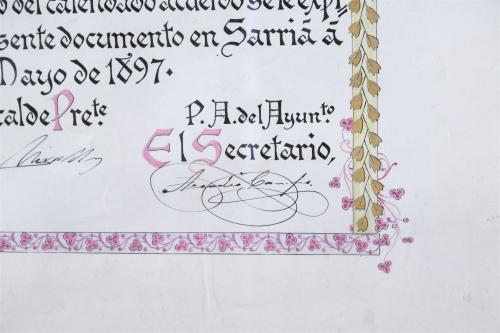 del calendado acuerdo se le expi-
sente documento en Sarriá á
Mayo de 1897.
calde Prete.
P. A. del Ayunto
El Secretario,